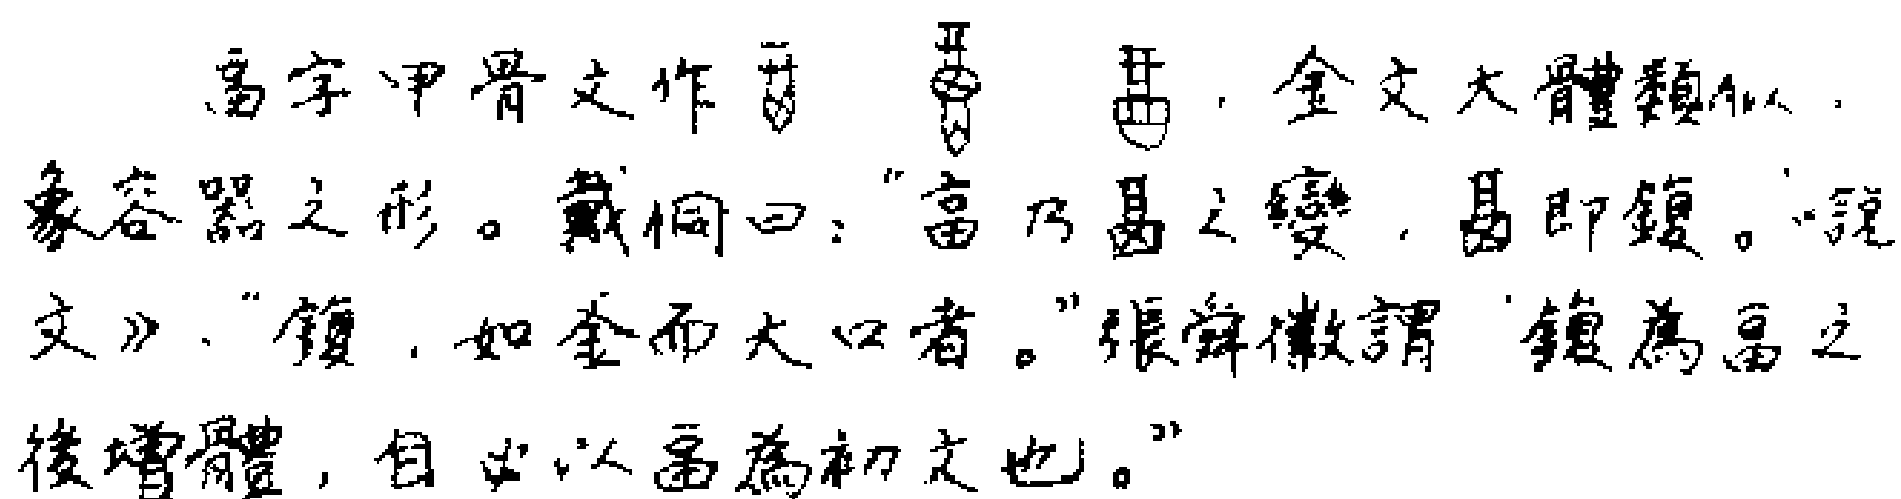 畐字甲骨文作，金文大體類似，
象容器之形。戴侗曰："畐乃之變，即鍑。《說
文》，"鍑，如釜而大口者。"張舜徽謂"鍑為畐之
後增體，自必以畐為初文也。"